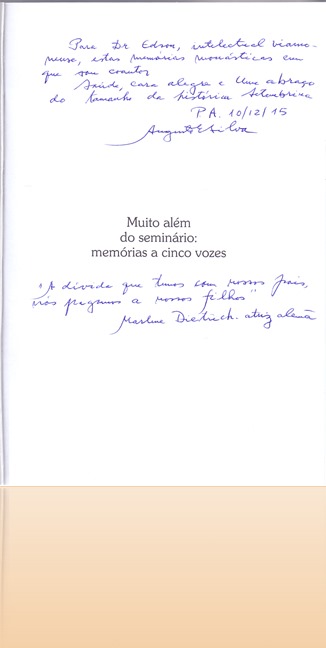 Para Dr Edson, intelectual viamo-
nense, estas memórias monásticas em
que sou coautor
Saúde, cara alegre e um abraço
do tamanho da história Setembrina
P.A. 10/12/15
Augusto Silva
Muito além
do seminário:
memórias a cinco vozes
"A dívida que temos com nossos pais,
nós pagamos a nossos filhos"
Marlene Dietrich. atriz alemã